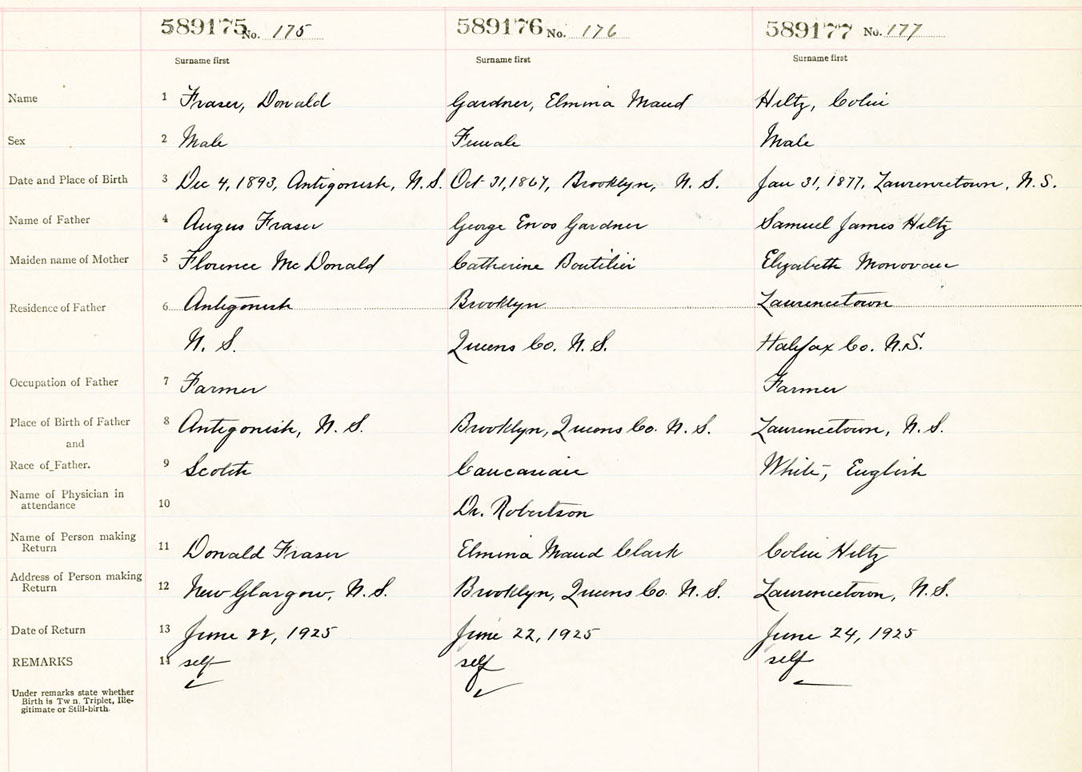 589175 No. 175 589176 No. 176 589177 No. 177
Surname first Surname first Surname first
Name 1 Fraser, Donald Gardner, Elmina Maud Hiltz, Colin
Sex 2 Male Female Male
Date and Place of Birth 3 Dec 4, 1893, Antigonish, N.S. Oct 31, 1867, Brooklyn, N.S. Jan 31, 1877, Lawrencetown, N.S.
Name of Father 4 Angus Fraser George Enos Gardner Samuel James Hiltz
Maiden name of Mother 5 Florence McDonald Catherine Boutilier Elizabeth
Residence of Father 6 Antigonish Brooklyn Lawrencetown
N. S. Queens Co. N.S. Halifax Co. N.S.
Occupation of Father 7 Farmer Farmer
Place of Birth of Father 8 Antigonish, N.S. Brooklyn, Queens Co. N.S. Lawrencetown, N.S.
and
Race of Father. 9 Scotch Caucasian White, English
Name of Physician in
attendance 10 Dr. Robertson
Name of Person making
Return 11 Donald Fraser Elmina Maud Clark Colin Hiltz
Address of Person making
Return 12 New Glasgow, N.S. Brooklyn, Queens Co. N.S. Lawrencetown, N.S.
Date of Return 13 June 22, 1925 June 22, 1925 June 24, 1925
REMARKS 14 self self self
Under remarks state whether
Birth is Tw n, Triplet, Ille-
gitimate or Still-birth.